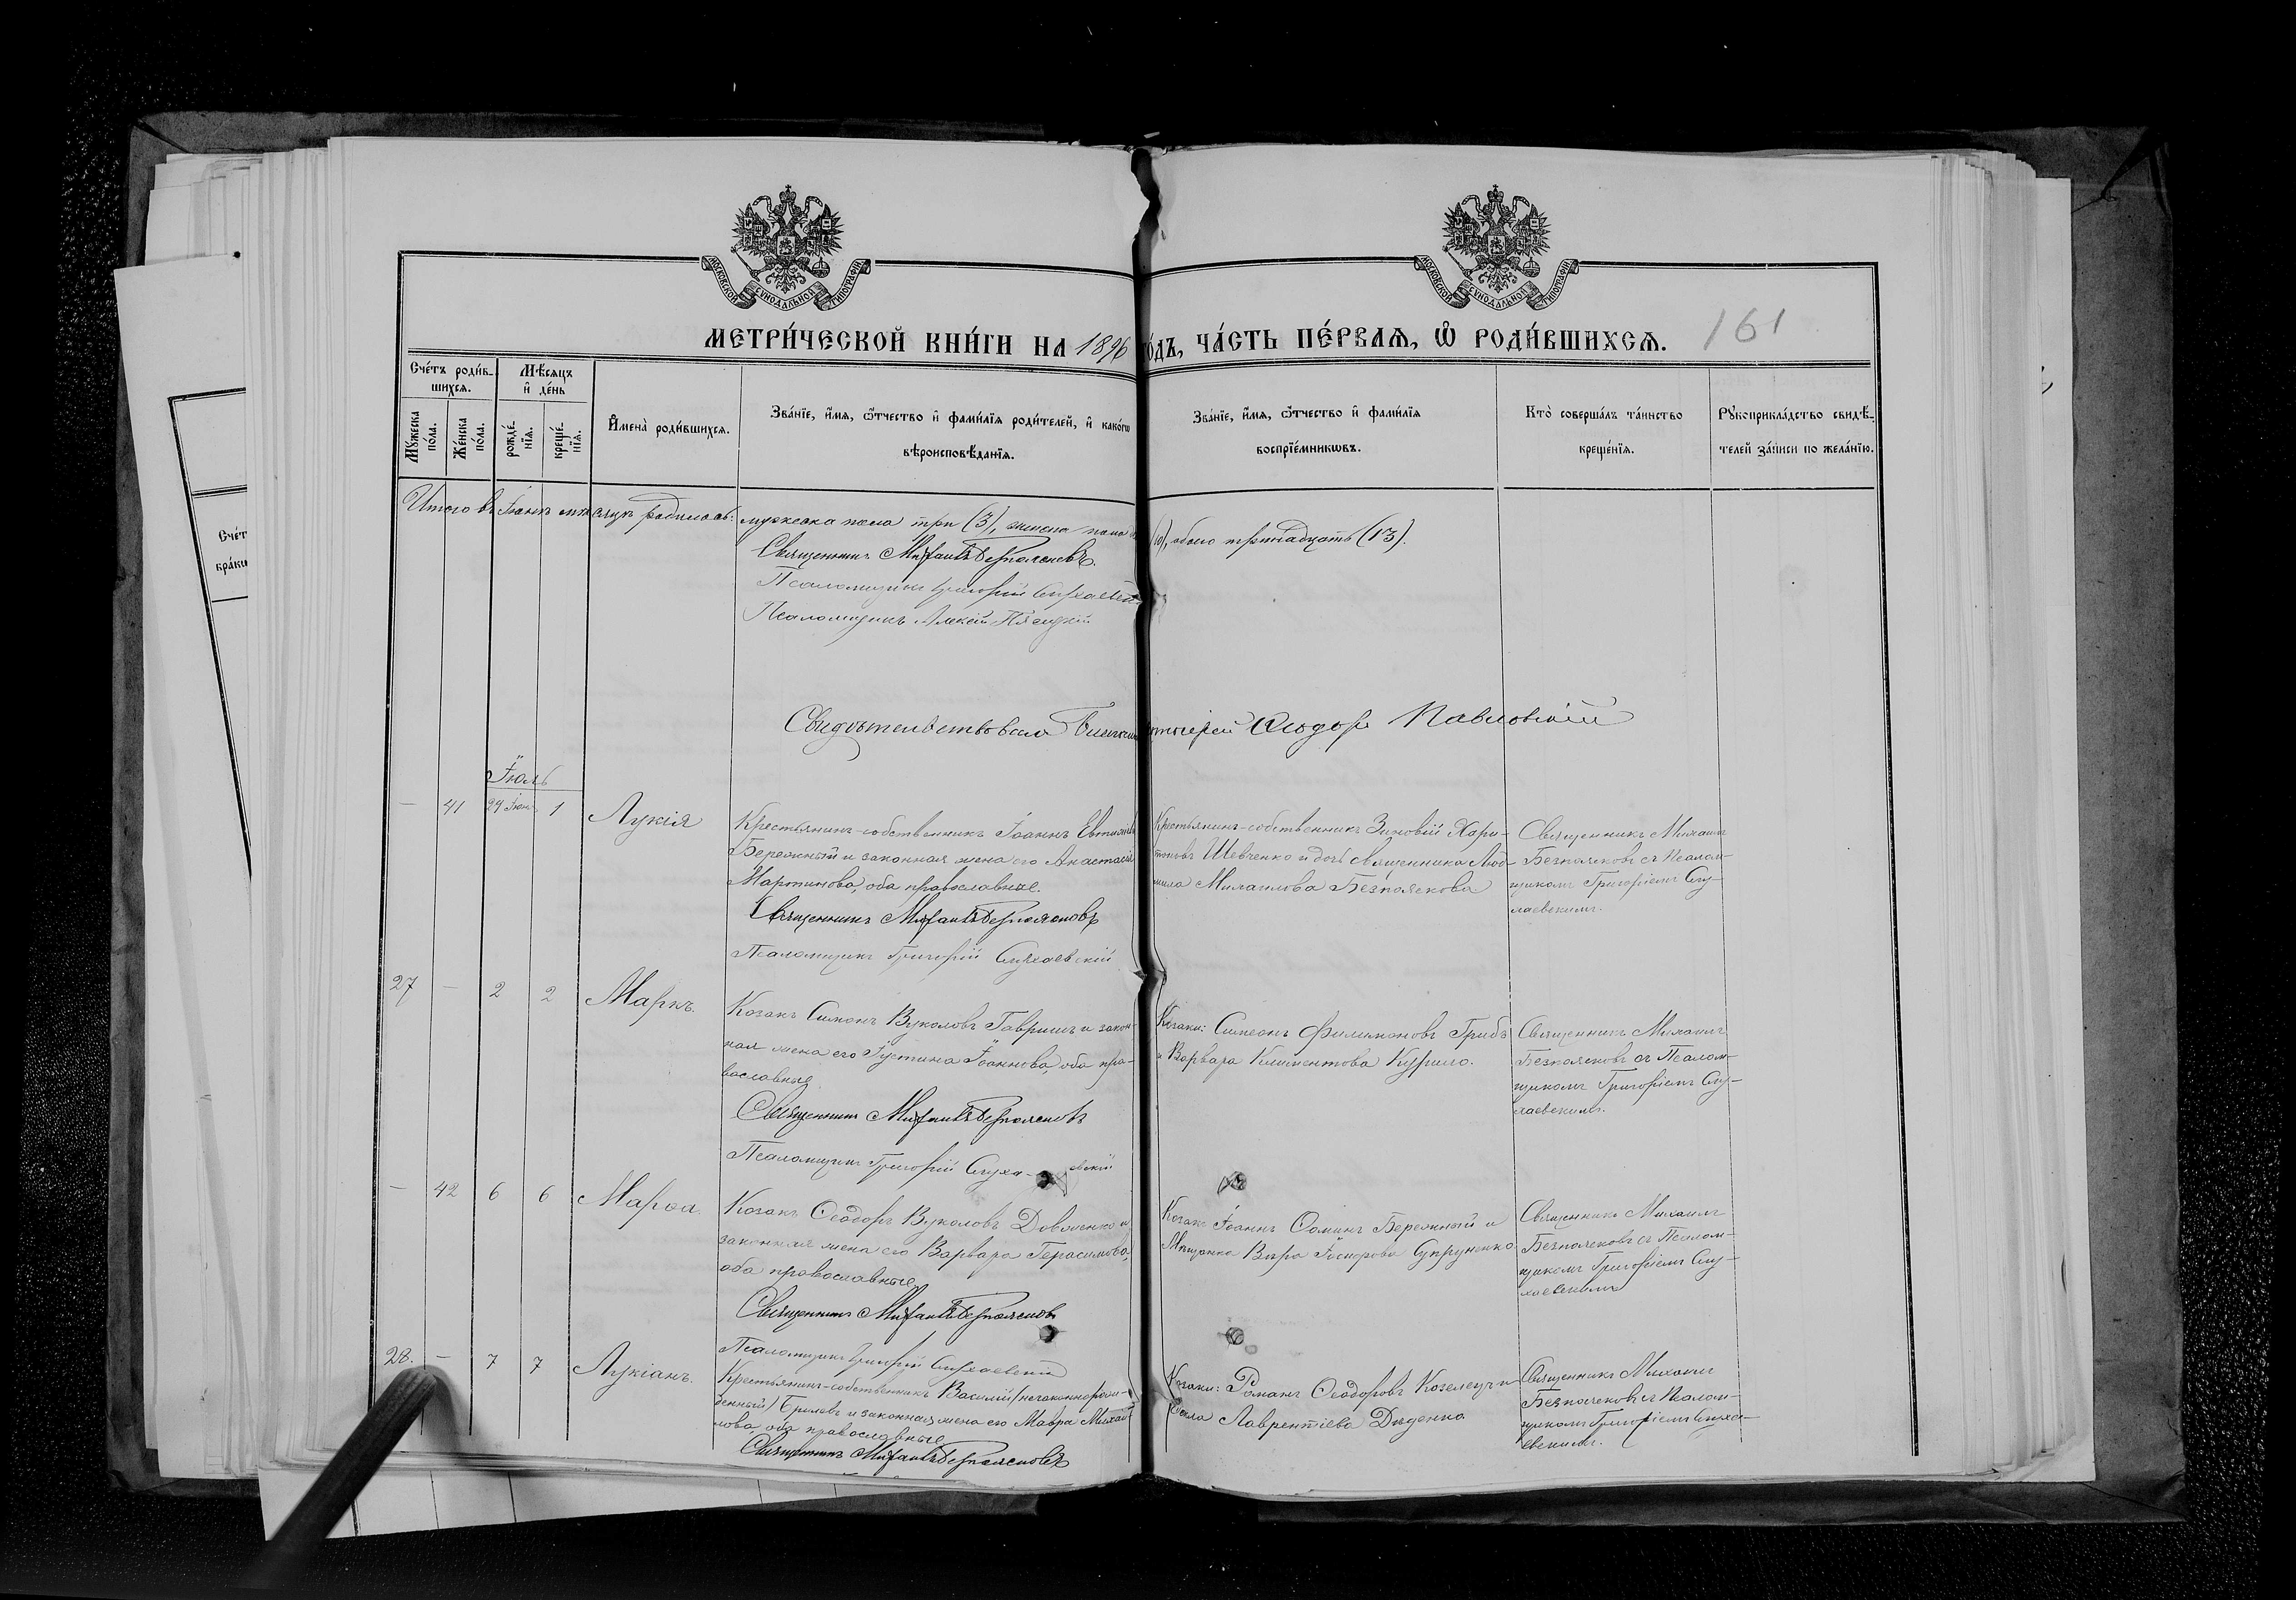 МОСКОВСКОЙ СУНОДАЛЬНОЙ ТИПОГРАФІИ
МОСКОВСКОЙ СУНОДАЛЬНОЙ ТИПОГРАФІИ
МЕТРИ́ЧЕСКОЙ КНИ́ГИ НА 1896 ГО́ДЪ, ЧА́СТЬ ПЕ́РВАѦ, Ѡ҆ РОДИ́ВШИХСѦ.
161
Сче́тъ роди́в-
шихсѧ.
Мѣ́сѧцъ
и҆ де́нь
Мꙋ́жеска
по́ла.
Же́нска
по́ла.
рожде́-
нїѧ.
креще́-
нїѧ.
И҆мена̀ роди́вшихсѧ.
Зва́нїе, и҆́мѧ, ѻ҆́тчество и҆ фами́лїѧ роди́телей, и҆ како́гѡ
вѣроисповѣ́данїѧ.
Зва́нїе, и҆́мѧ, ѻ҆́тчество и҆ фами́лїѧ
воспрїе́мникѡвъ.
Кто̀ соверша́лъ та́инство
креще́нїѧ.
Рꙋкоприкла́дство свидѣ́-
телей за́писи по жела́нїю.
Счет
браки
Итого въ Іюнѣ мѣсяцѣ родилось: мужеска пола три (3), женска пола (10), обоего тринадцать (13).
Священникъ Михаилъ Безпоясковъ.
Псаломщикъ Григорій Слухаевскій
Псаломщикъ Алексій
Свидѣтельствовалъ Благочинный Іерей Ѳеодоръ Павловскій
Іюль
— 41 29 Іюня 1 Лукія
Крестьянинъ-собственникъ Іоаннъ Евтихіевъ
Бережный и законная жена его Анастасія
Мартинова, оба православные.
Священникъ Михаилъ Безпоясковъ
Псаломщикъ Григорій Слухаевскій
Крестьянинъ-собственникъ Зиновій Хари-
тоновъ Шевченко и дочь священника Люд-
мила Михаилова Безпояскова
Священникъ Михаилъ
Безпоясковъ съ Псалом-
щикомъ Григоріемъ Слу-
хаевскимъ.
27 — 2 2 Маркъ.
Козакъ Симонъ Вуколовъ Гавришъ и закон-
ная жена его Іустина Іоаннова, оба пра-
вославные
Священникъ Михаилъ Безпоясковъ
Псаломщикъ Григорій Слуха-евскій
Козаки: Симеонъ Филимоновъ Грибъ
и Варвара Климентова Курило.
Священникъ Михаилъ
Безпоясковъ съ Псалом-
щикомъ Григоріемъ Слу-
хаевскимъ.
— 42 6 6 Марѳа.
Козакъ Ѳеодоръ Вуколовъ Довженко и
законная жена его Варвара Герасимова,
оба православные
Священникъ Михаилъ Безпоясковъ
Псаломщикъ Григорій Слухаевскій
Козакъ Іоаннъ Ѳоминъ Бережный и
Мѣщанка Вѣра Супруненко
Священникъ Михаилъ
Безпоясковъ съ Псалом-
щикомъ Григоріемъ Слу-
хаевскимъ
28. — 7 7 Лукіанъ.
Крестьянинъ-собственникъ Василій /незаконнорож-
денный/ и законная жена его Мавра Михаи-
лова, оба православные
Священникъ Михаилъ Безпоясковъ
Козаки: Романъ Ѳеодоровъ Козелецъ и
Лаврентіева Дѣденко
Священникъ Михаилъ
Безпоясковъ съ Псалом-
щикомъ Григоріемъ Слуха-
евскимъ.